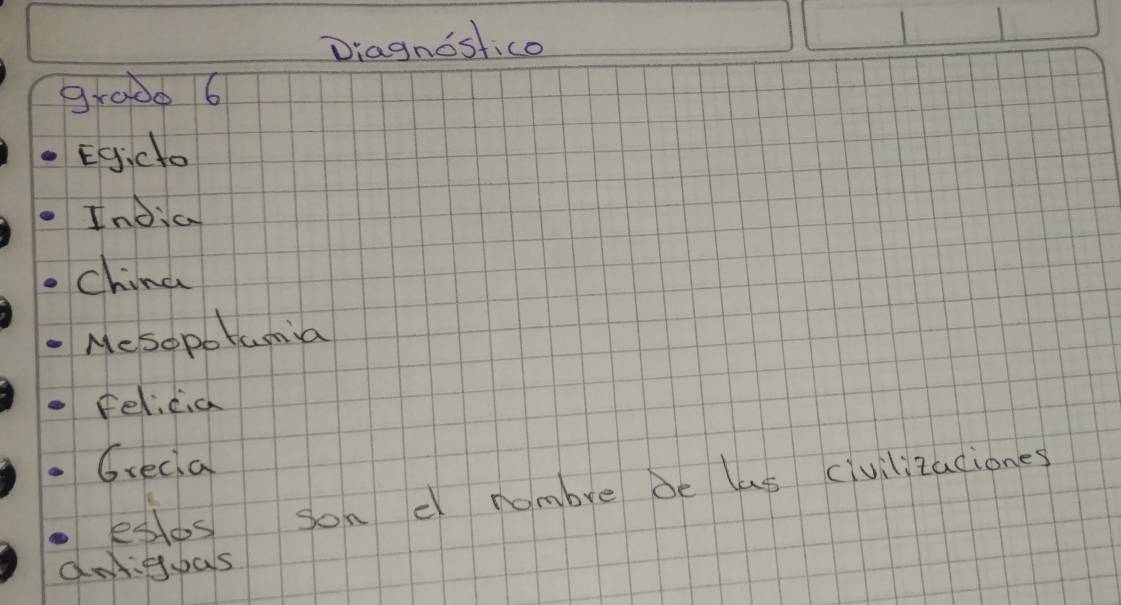 Diagnóstico
grado 6
• Egicto
• India
• China
• Mesopotamia
• Felicia
• Grecia
• estos son el nombre de las civilizaciones
antiguas